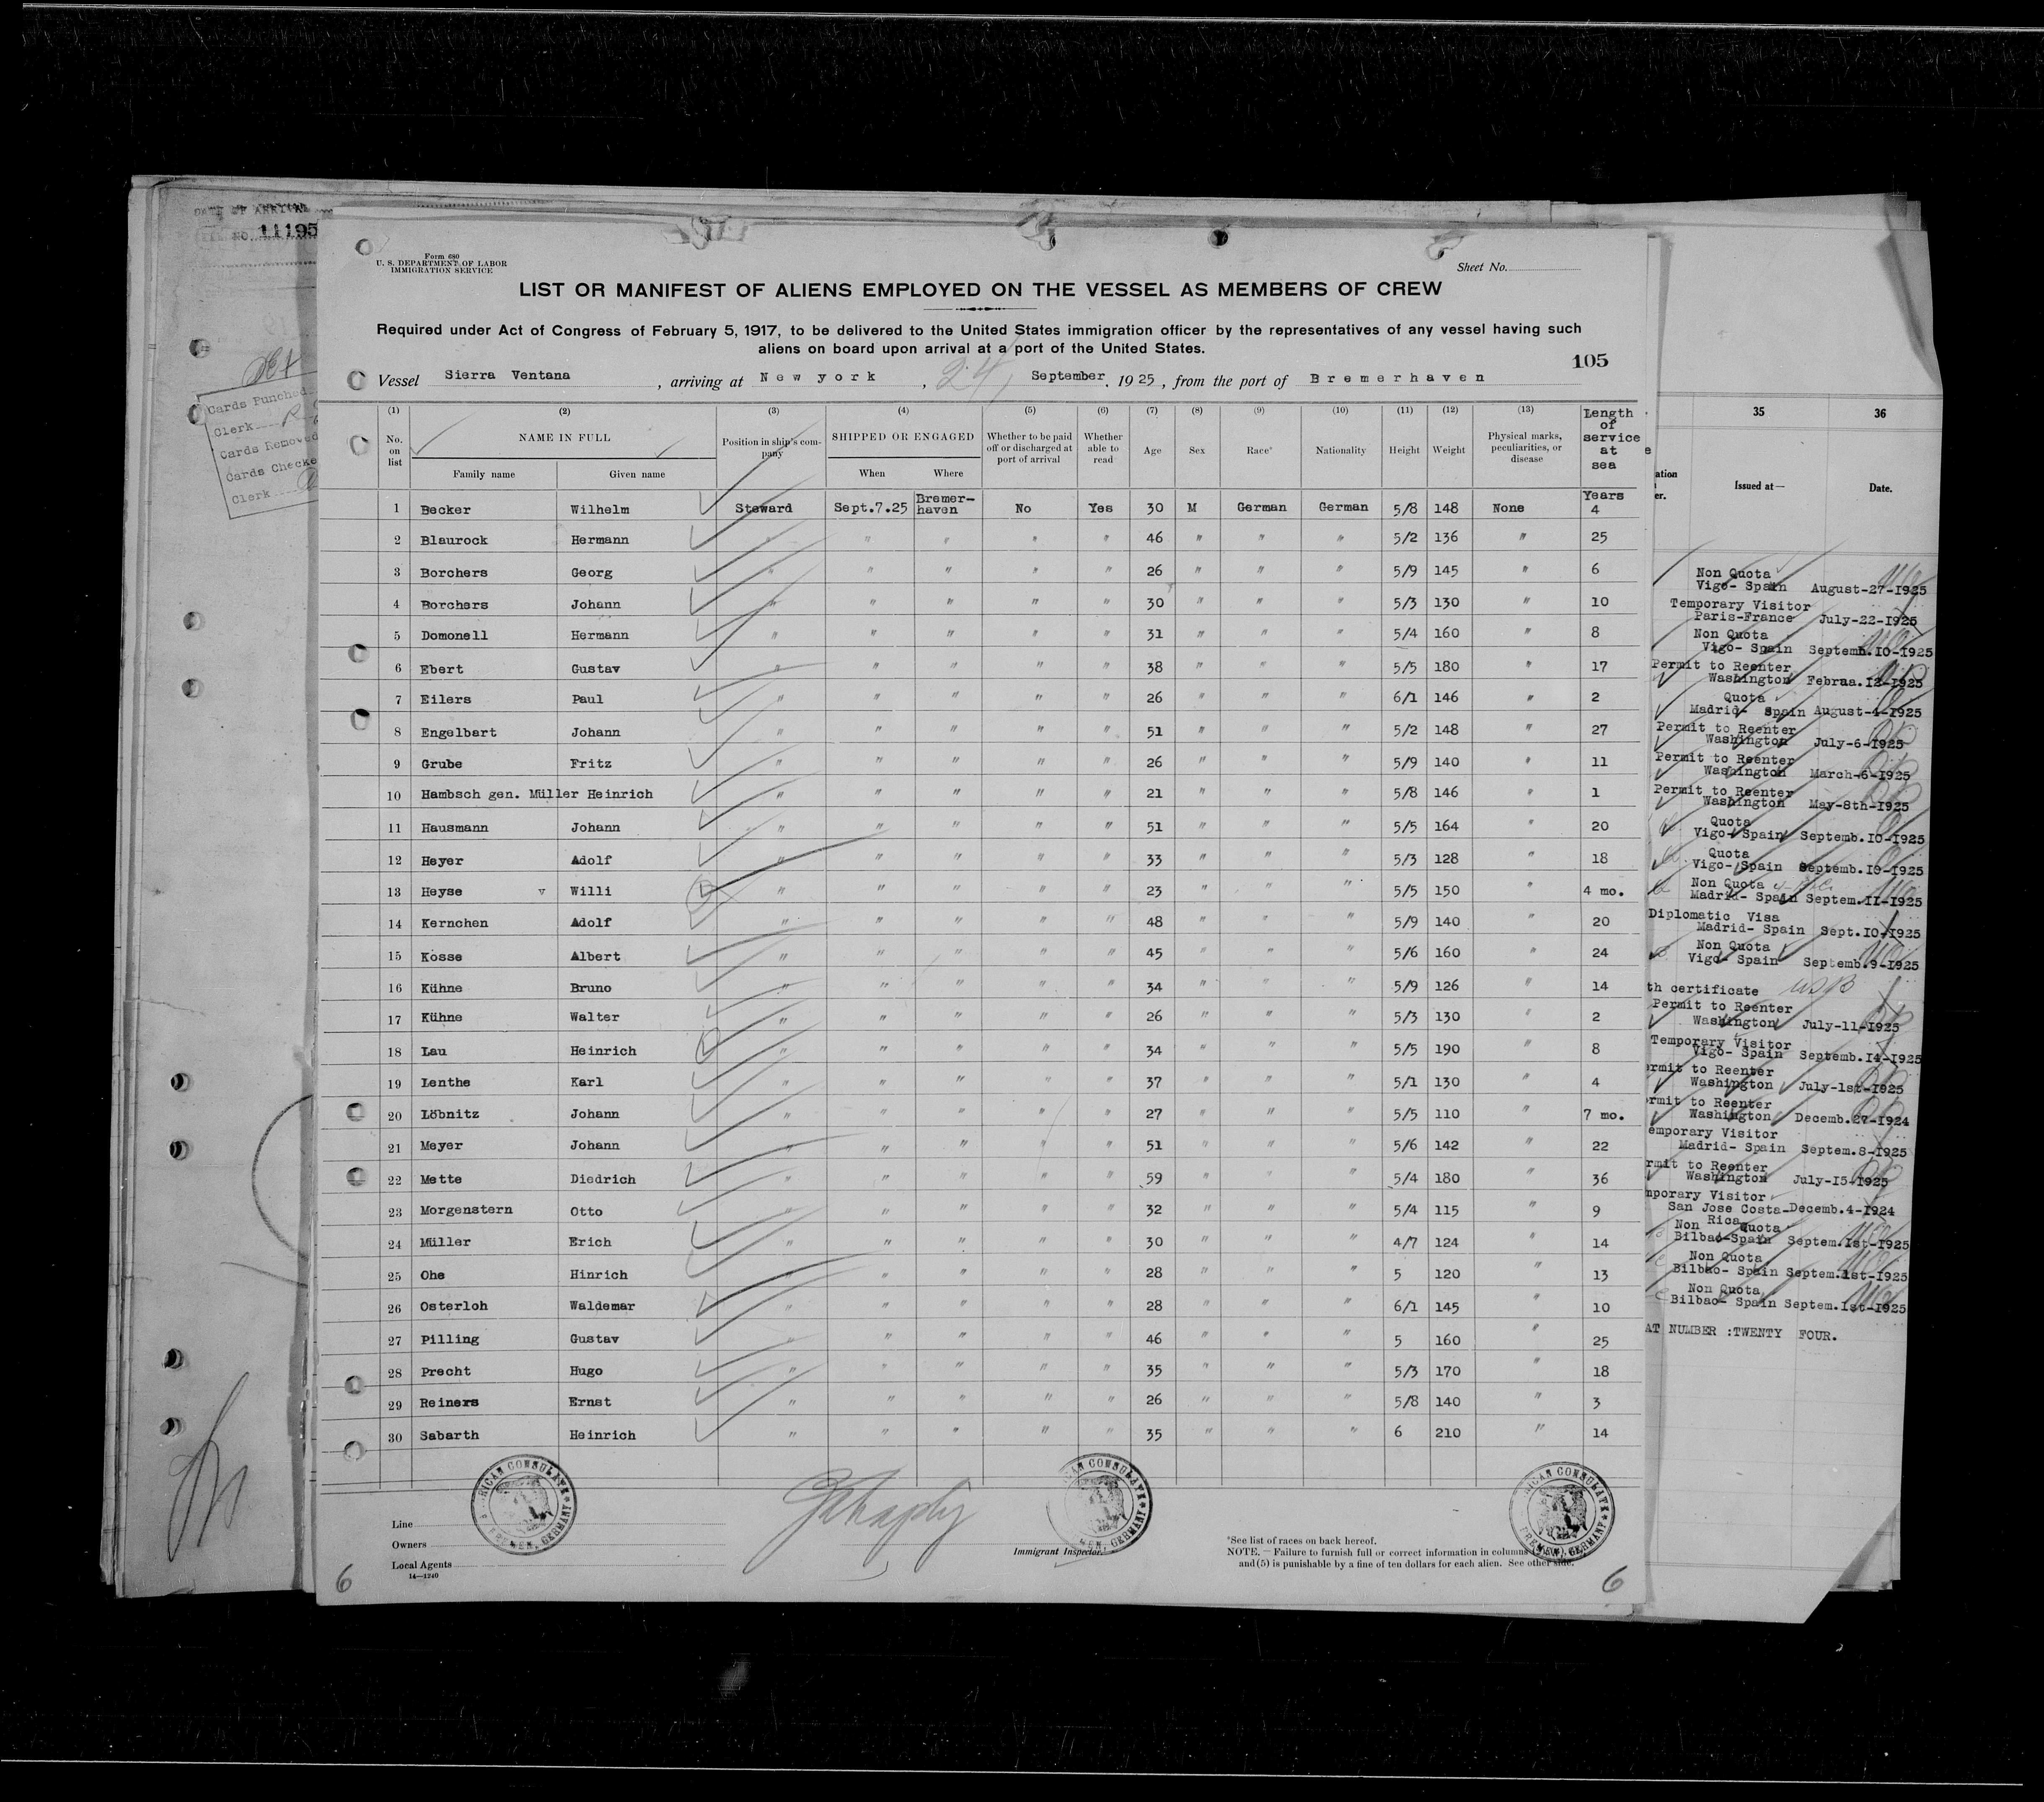 DATE OF ARRIVAL
NO. 11195
Cards Punched
Clerk
Cards Removed
Cards Checke
Clerk
Form 680
U. S. DEPARTMENT OF LABOR
IMMIGRATION SERVICE
Sheet No.
LIST OR MANIFEST OF ALIENS EMPLOYED ON THE VESSEL AS MEMBERS OF CREW
Required under Act of Congress of February 5, 1917, to be delivered to the United States immigration officer by the representatives of any vessel having such
aliens on board upon arrival at a port of the United States.
105
Vessel Sierra Ventana, arriving at New york, 24, September, 1925, from the port of Bremerhaven
(1) (2) (3) (4) (5) (6) (7) (8) (9) (10) (11) (12) (13) Length of service at sea
No. on list NAME IN FULL Position in ship's company SHIPPED OR ENGAGED Whether to be paid off or discharged at port of arrival Whether able to read Age Sex Race* Nationality Height Weight Physical marks, peculiarities, or disease
Family name Given name When Where
1 Becker Wilhelm Steward Sept.7.25 Bremer-haven No Yes 30 M German German 5/8 148 None Years 4
2 Blaurock Hermann " " " " " 46 " " " 5/2 136 " 25
3 Borchers Georg " " " " " 26 " " " 5/9 145 " 6
4 Borchers Johann " " " " " 30 " " " 5/3 130 " 10
5 Domonell Hermann " " " " " 31 " " " 5/4 160 " 8
6 Ebert Gustav " " " " " 38 " " " 5/5 180 " 17
7 Eilers Paul " " " " " 26 " " " 6/1 146 " 2
8 Engelbart Johann " " " " " 51 " " " 5/2 148 " 27
9 Grube Fritz " " " " " 26 " " " 5/9 140 " 11
10 Hambsch gen. Müller Heinrich " " " " " 21 " " " 5/8 146 " 1
11 Hausmann Johann " " " " " 51 " " " 5/5 164 " 20
12 Heyer Adolf " " " " " 33 " " " 5/3 128 " 18
13 Heyse v Willi " " " " " 23 " " " 5/5 150 " 4 mo.
14 Kernchen Adolf " " " " " 48 " " " 5/9 140 " 20
15 Kosse Albert " " " " " 45 " " " 5/6 160 " 24
16 Kühne Bruno " " " " " 34 " " " 5/9 126 " 14
17 Kühne Walter " " " " " 26 " " " 5/3 130 " 2
18 Lau Heinrich " " " " " 34 " " " 5/5 190 " 8
19 Lenthe Karl " " " " " 37 " " " 5/1 130 " 4
20 Löbnitz Johann " " " " " 27 " " " 5/5 110 " 7 mo.
21 Meyer Johann " " " " " 51 " " " 5/6 142 " 22
22 Mette Diedrich " " " " " 59 " " " 5/4 180 " 36
23 Morgenstern Otto " " " " " 32 " " " 5/4 115 " 9
24 Müller Erich " " " " " 30 " " " 4/7 124 " 14
25 Ohe Hinrich " " " " " 28 " " " 5 120 " 13
26 Osterloh Waldemar " " " " " 28 " " " 6/1 145 " 10
27 Pilling Gustav " " " " " 46 " " " 5 160 " 25
28 Precht Hugo " " " " " 35 " " " 5/3 170 " 18
29 Reiners Ernst " " " " " 26 " " " 5/8 140 " 3
30 Sabarth Heinrich " " " " " 35 " " " 6 210 " 14
Line
Owners
Local Agents
14—1240
Immigrant Inspector.
*See list of races on back hereof.
NOTE.—Failure to furnish full or correct information in columns
and (5) is punishable by a fine of ten dollars for each alien. See other side.
6
6
35 36
Issued at— Date.
Non Quota
Vigo- Spain August-27-1925
Temporary Visitor
Paris-France July-22-1925
Non Quota
Vigo- Spain Septemb.10-1925
Permit to Reenter
Washington Februa.12-1925
Quota
Madrid- Spain August-4-1925
Permit to Reenter
Washington July-6-1925
Permit to Reenter
Washington March-6-1925
Permit to Reenter
Washington May-8th-1925
Quota
Vigo-Spain Septemb.10-1925
Quota
Vigo- Spain Septemb.10-1925
Non Quota
Madrid- Spain Septem.11-1925
Diplomatic Visa
Madrid- Spain Sept.10-1925
Non Quota
Vigo- Spain Septemb.9-1925
th certificate USB
Permit to Reenter
Washington July-11-1925
Temporary Visitor
Vigo- Spain Septemb.14-1925
ermit to Reenter
Washington July-1st-1925
rmit to Reenter
Washington Decemb.27-1924
emporary Visitor
Madrid- Spain Septem.8-1925
rmit to Reenter
Washington July-15-1925
mporary Visitor
San Jose Costa-Rica Decemb.4-1924
Non Quota
Bilbao-Spain Septem.1st-1925
Non Quota
Bilbao- Spain Septem.1st-1925
Non Quota
Bilbao- Spain Septem.1st-1925
AT NUMBER :TWENTY FOUR.